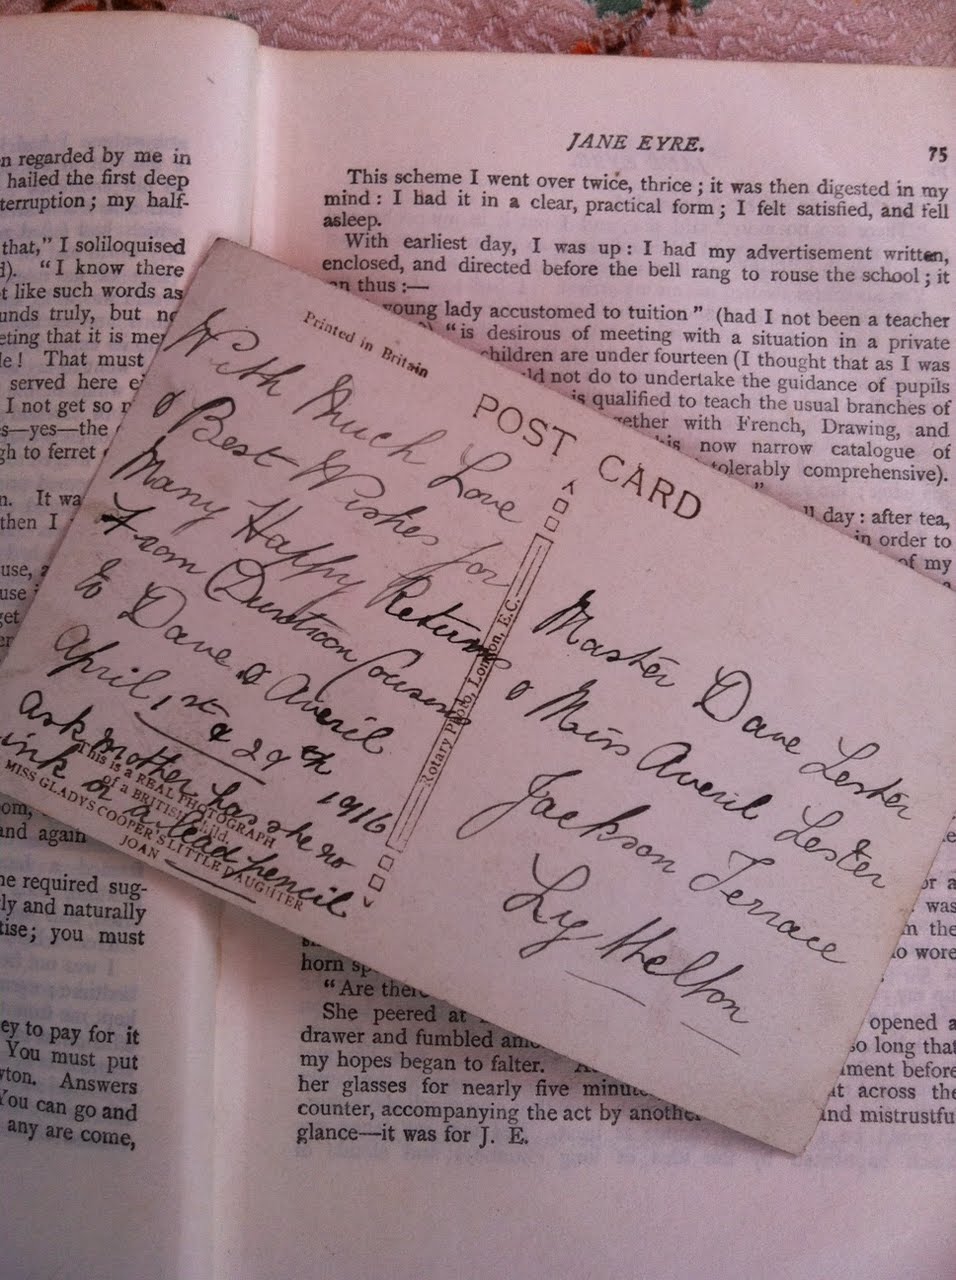 n regarded by me in
hailed the first deep
terruption; my half-
that," I soliloquised
). "I know there
t like such words as
unds truly, but
eting that it is
! That must
served here
I not get so
s—yes—the
gh to ferret
n. It
then I
use,
use
get
and again
e required sug-
ly and naturally
tise; you must
ey to pay for it
You must put
ton. Answers
You can go and
any are come,
JANE EYRE. 75
This scheme I went over twice, thrice; it was then digested in my
mind: I had it in a clear, practical form; I felt satisfied, and fell
asleep.
With earliest day, I was up: I had my advertisement written,
enclosed, and directed before the bell rang to rouse the school; it
an thus:—
young lady accustomed to tuition" (had I not been a teacher
"is desirous of meeting with a situation in a private
children are under fourteen (I thought that as I was
ld not do to undertake the guidance of pupils
is qualified to teach the usual branches of
gether with French, Drawing, and
his now narrow catalogue of
tolerably comprehensive).
"
ll day: after tea,
in order to
of my
or a
was
m the
to wore
horn
"Are
She peered at
opened a
drawer and fumbled
so long that
my hopes began to falter.
ment before
her glasses for nearly five
it across the
counter, accompanying the act by another
and mistrustfu
glance—it was for J. E.
Printed in Britain
POST CARD
With Much Love
& Best Wishes for
Many Happy Returns
From Duntroon Cousins
to Dave & Averil
April 1st & 29th
1916
ask mother has she no
ink or a lead pencil
This is a REAL PHOTOGRAPH
of a BRITISH Child.
MISS GLADYS COOPER'S LITTLE DAUGHTER
JOAN
Rotary Photo, London, E.C.
Master Dave Lester
& Miss Averil Lester
Jackson Terrace
Lyttelton